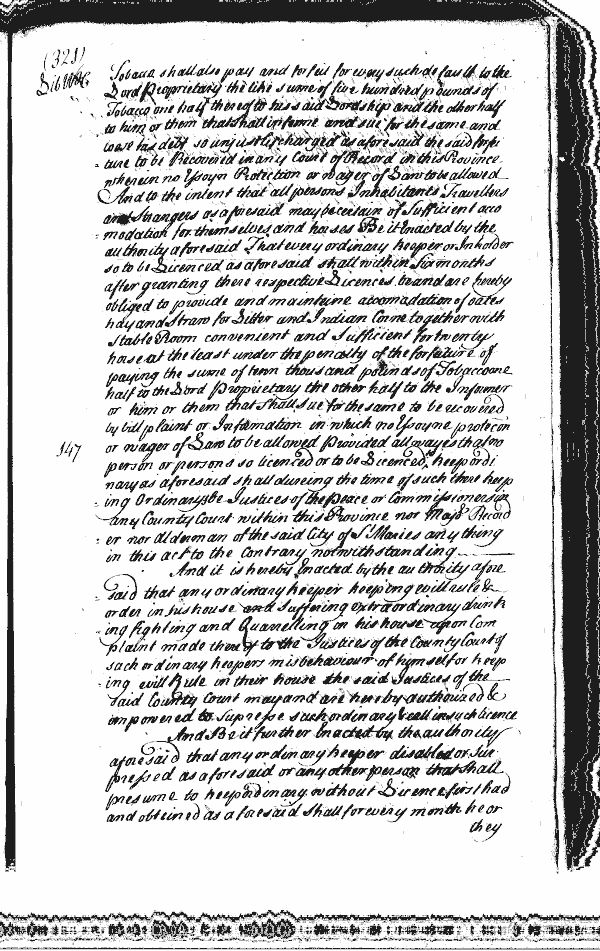 (321)
Lib WHL
Tobacco shall also pay and forfeit for every such default to the
Lord Proprietary the like sume of five hundred pounds of
Tobacco one half thereof to his said Lordship and the other half
to him or them that shall informe and sue for the same and
whose his debt so unjustly charged as aforesaid the said forfei
ture to be Recovered in any Court of Record in this Province
wherein no Essoyn Protection or wager of Law to be allowed
And to the intent that all persons Inhabitants Travellers
and Strangers as aforesaid may be certain of Sufficient acco
modation for themselves and horses Be it Enacted by the
authority aforesaid That every ordinary keeper or Inholder
so to be Licenced as aforesaid shall within Six months
after granting there respective Licences be and are hereby
obliged to provide and maintaine accomadation of oates
hay and Straw for Litter and Indian Corne together with
Stable Room convenient and Sufficient for twenty
horse at the least under the penalty of the forfeiture of
paying the sume of tenn thousand pounds of Tobacco one
half to the Lord Proprietary the other half to the Informer
or him or them that shall sue for the same to be recovered
by bill plaint or Information in which no Essoyne protecon
or wager of Law to be allowed Provided allwayes that no
147
person or persons so licenced or to be Licenced, keep ordi
nary as aforesaid shall dureing the time of such there keep
ing Ordinarys be Justices of the Peace or Commissioners in
any County Court within this Province nor Mayr Record
er nor Alderman of the said City of St Maries any thing
in this act to the Contrary notwithstanding
And it is hereby Enacted by the authority afore
said that any ordinary keeper keeping evill rule &
order in his house and Suffering extraordinary drink
ing fighting and Quarrelling in his house upon Com
plaint made thereof to the Justices of the County Court of
such ordinary keepers misbehaviour of himself or keep
ing evill Rule in their house the said Justices of the
said County Court may and are hereby authorized &
impowered to Supresse such ordinary & call in such licence
And Be it further Enacted by the authority
aforesaid that any ordinary keeper disabled or Sup
pressed as aforesaid or any other person that shall
presume to keep ordinary without Licence first had
and obteined as aforesaid shall for every month he or
they